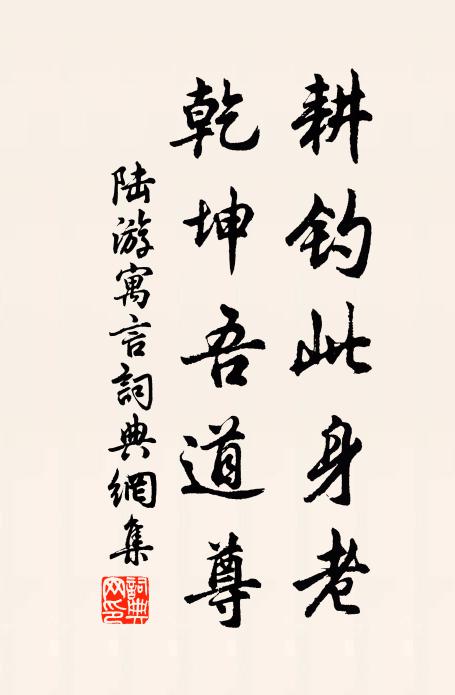 耕钓此身老
乾坤吾道尊
陆游寓言詞典網集
詞典網印